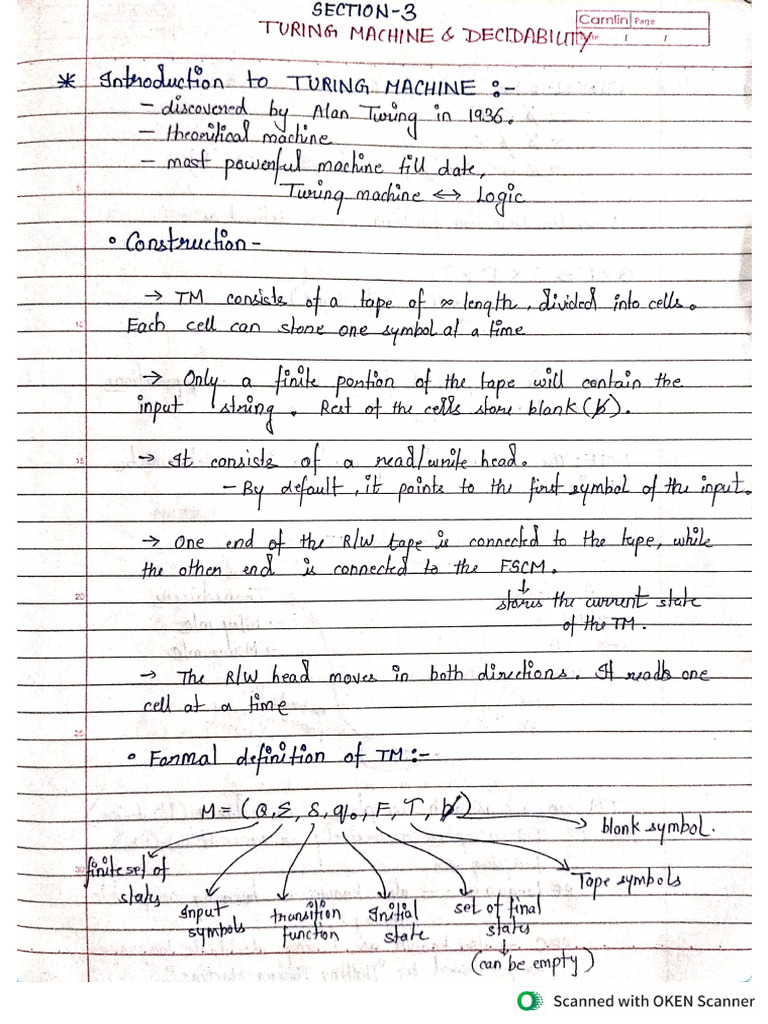 SECTION-3
TURING MACHINE & DECIDABILITY
Camlin Page
* Introduction to TURING MACHINE :-
- discovered by Alan Turing in 1936.
- theoritical machine
- most powerful machine till date,
Turing machine ↔ Logic
• Construction -
→ TM consists of a tape of ∞ length, divided into cells.
Each cell can store one symbol at a time
→ Only a finite portion of the tape will contain the
input string. Rest of the cells store blank (b̸).
→ It consists of a read/write head.
- By default, it points to the first symbol of the input.
→ One end of the R/W tape is connected to the tape, while
the other end is connected to the FSCM.
↓
stores the current state
of the TM.
→ The R/W head moves in both directions. It reads one
cell at a time
• Formal definition of TM :-
M = (Q, Σ, δ, q₀, F, T, b̸)
blank symbol.
finite set of
states
Tape symbols
Input
symbols
transition
function
Initial
state
set of final
states
↓
(can be empty)
5
10
15
20
25
30
Scanned with OKEN Scanner